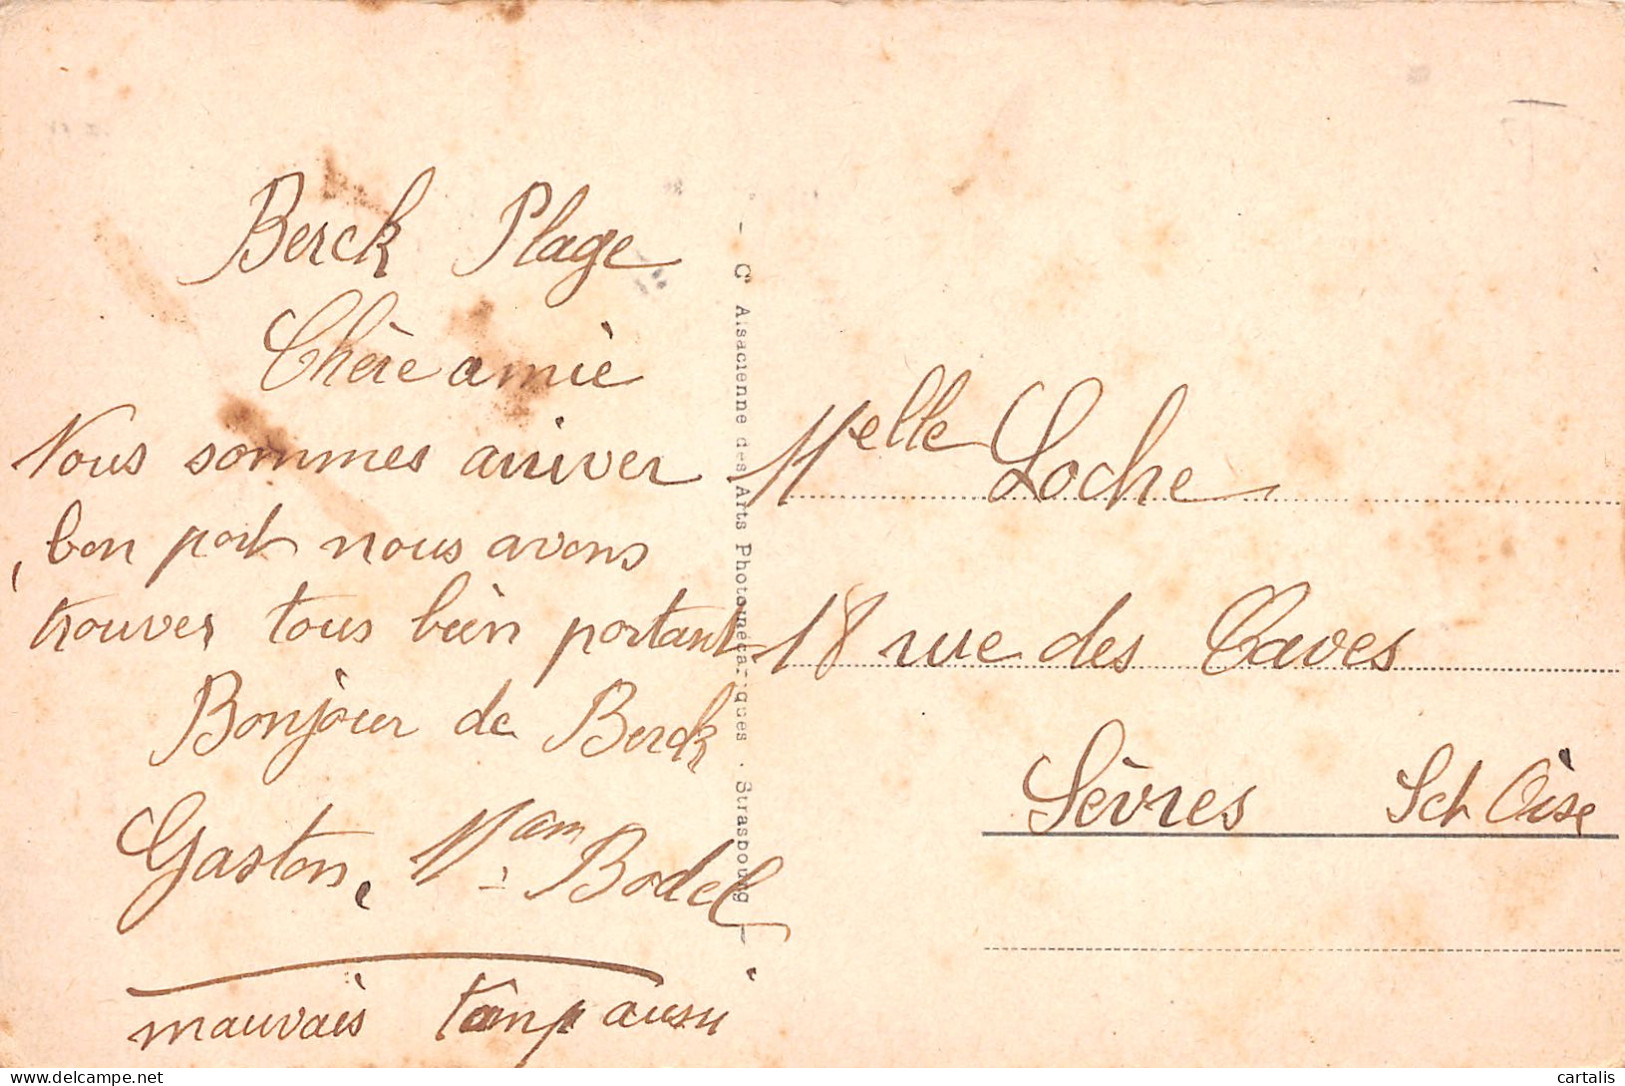 Berck Plage
Chère amie
Nous sommes arriver
bon port nous avons
trouver tous bien portant
Bonjour de Berck
Gaston, Mam Bodel
mauvais tamp aussi
Cie Alsacienne des Arts Photomécaniques - Strasbourg
Melle Loche
18 rue des Caves
Sèvres Set Oise
cartalis